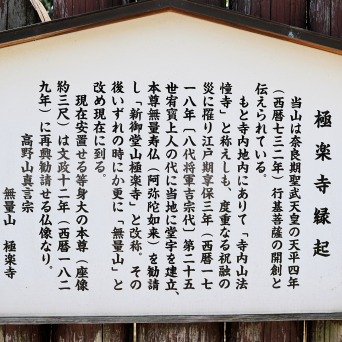 極楽寺縁起
当山は奈良期聖武天皇の天平四年
（西暦七三二年）行基菩薩の開創と
伝えられている。
もと寺内地内にありて「寺内山法
憧寺」と称えしも、度重なる祝融の
災に罹り江戸期享保三年（西暦一七
一八年）〔八代将軍吉宗代〕第二十五
世宥賀上人の代に当地に堂宇を建立、
本尊無量寿仏（阿弥陀如来）を勧請
し「新御堂山極楽寺」と改称。その
後いずれの時にか更に「無量山」と
改め現在に到る。
現在安置せる等身大の本尊（座像
約三尺）は文政十二年（西暦一八二
九年）に再興勧請せる仏像なり。
高野山真言宗
無量山　極楽寺